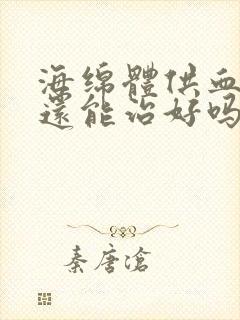 海绵體供血
還能治好吗
秦唐滄